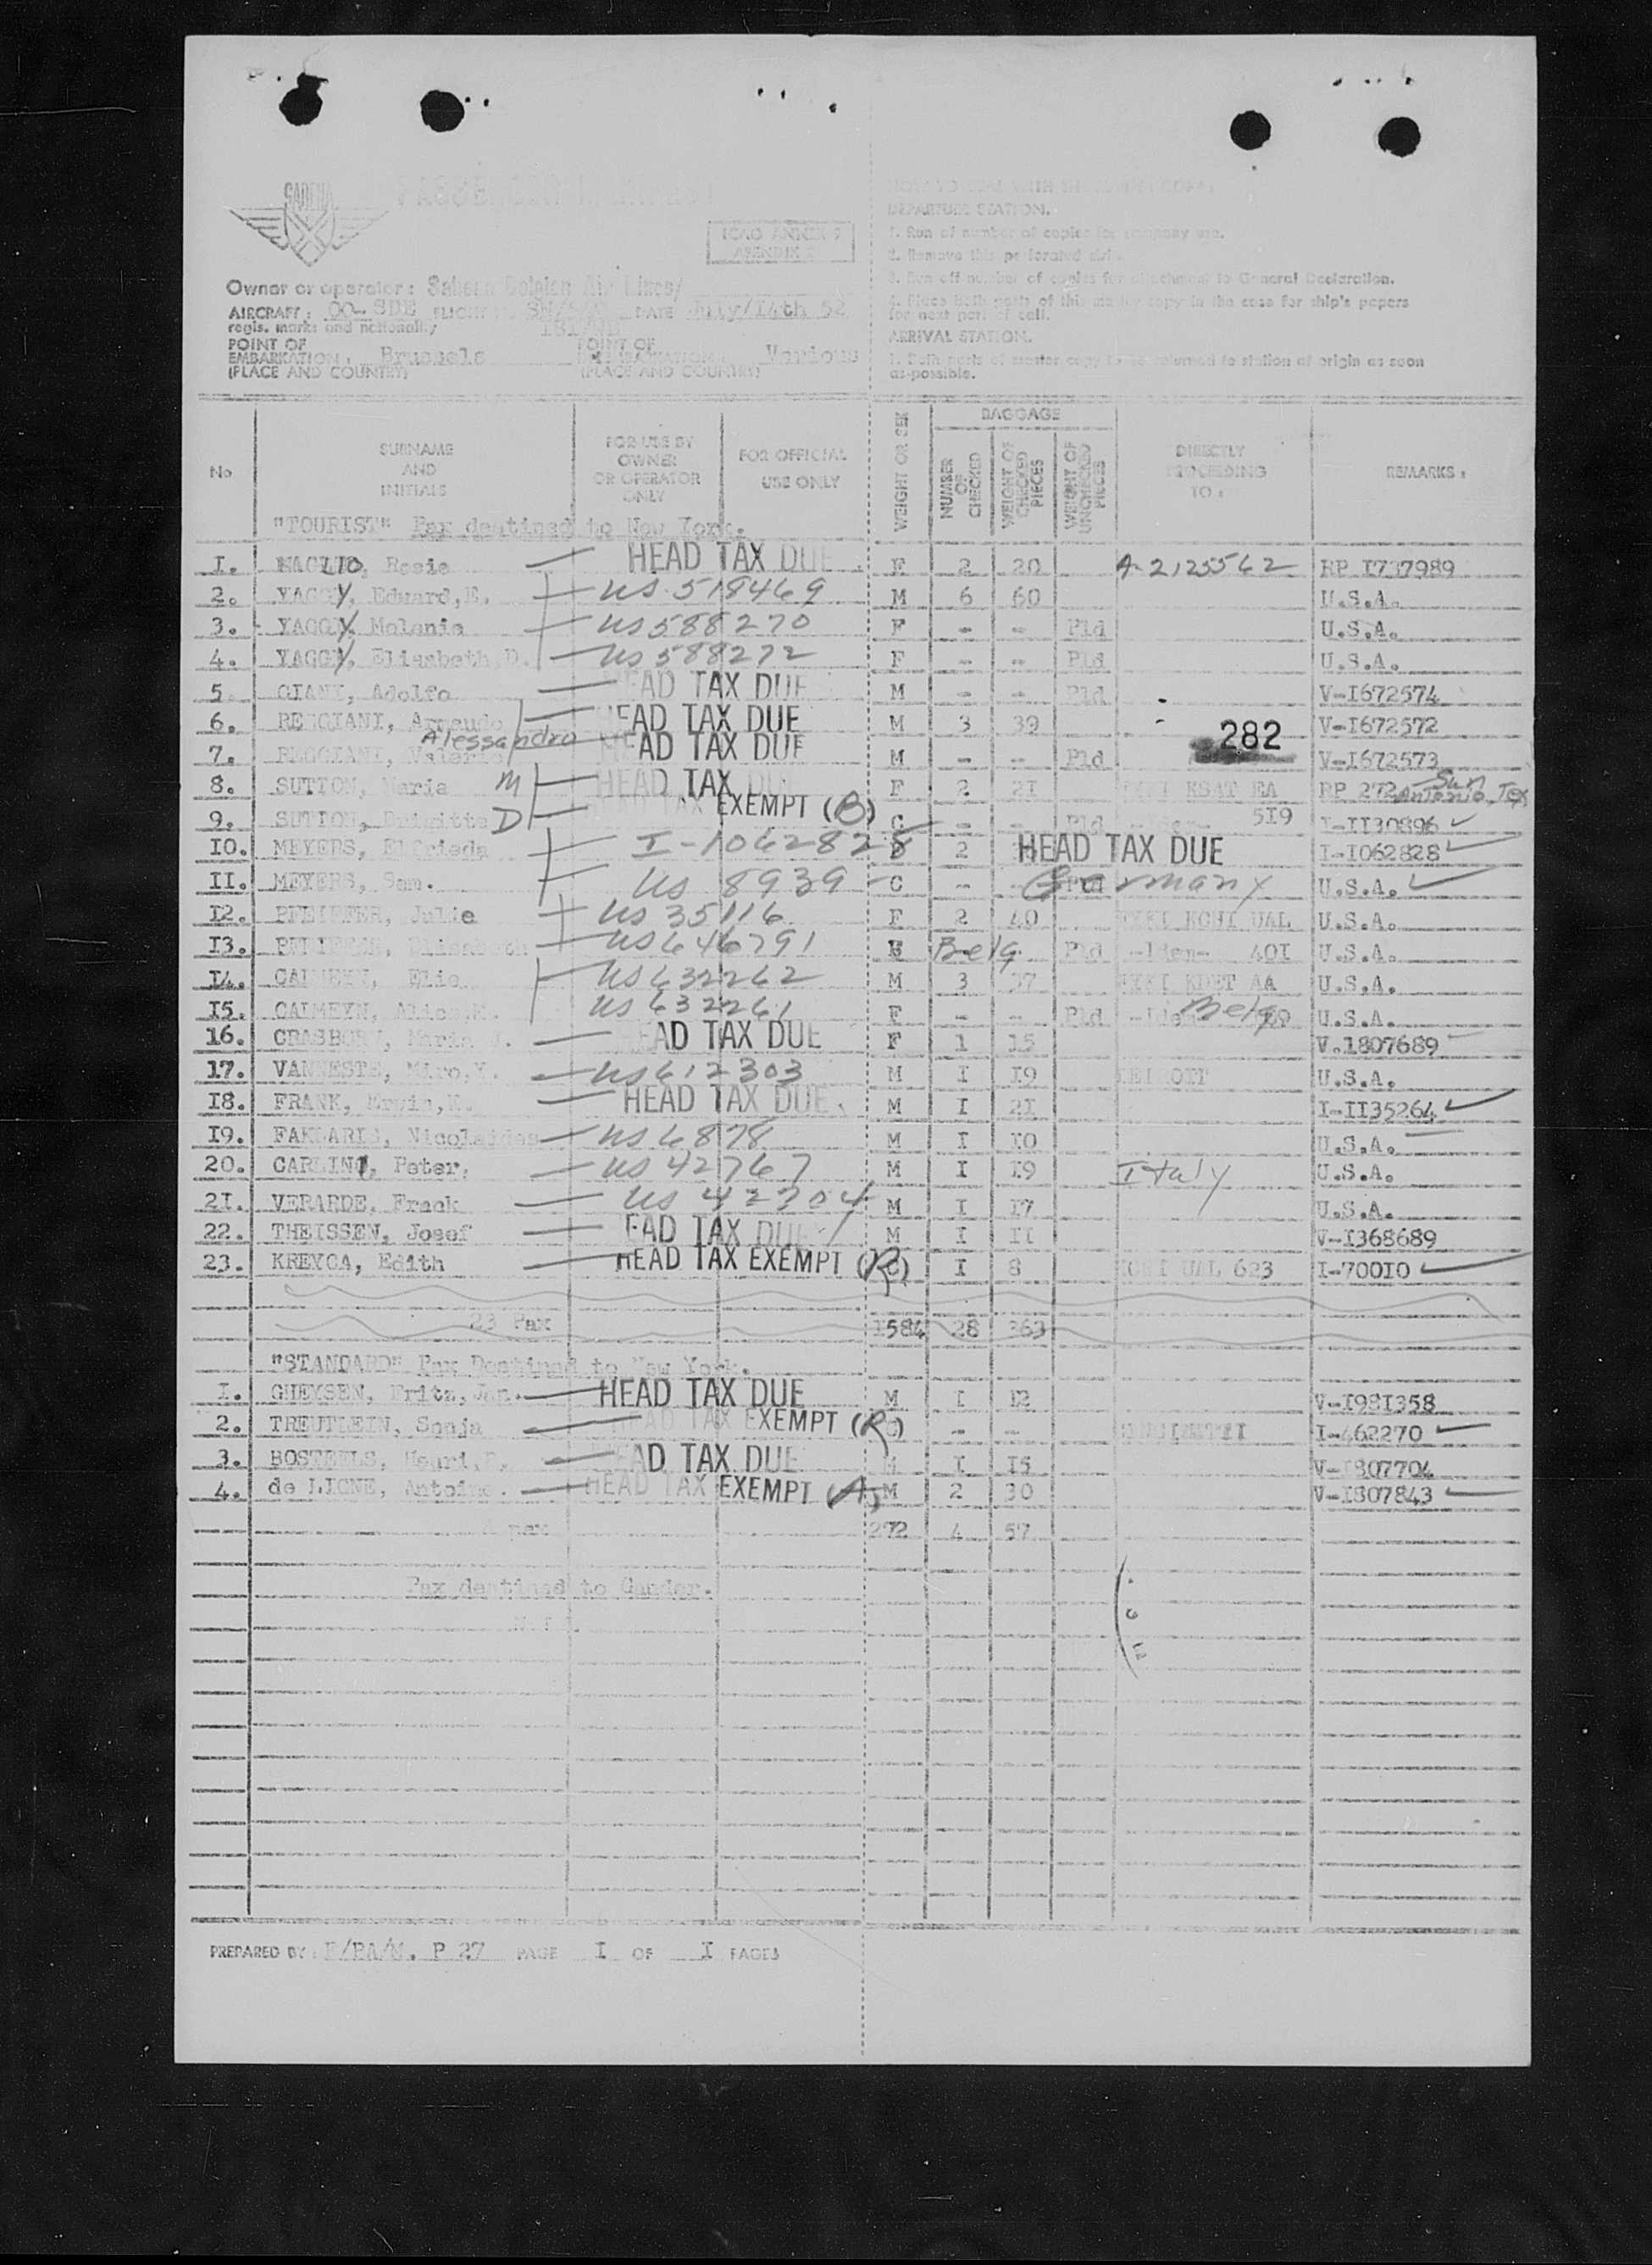 SABENA
PASSENGER MANIFEST
ICAO ANNEX 9
APENDIX
Owner or operator: Sabena Belgian Air Lines/
AIRCRAFT: OO-SDE FLIGHT DATE July/14th 52
regis. marks and nationality
POINT OF EMBARKATION: Brussels POINT OF Various
(PLACE AND COUNTRY) (PLACE AND COUNTRY)
DEPARTURE STATION.
1. Run of number of copies for company use.
2. Remove this perforated
3. Run off number of copies for attachment to General Declaration.
4. Place both parts of this master copy in the case for ship's papers
for next port of call.
ARRIVAL STATION.
1. Both parts of master copy to be returned to station of origin as soon
as possible.
No SURNAME AND INITIALS FOR USE BY OWNER OR OPERATOR ONLY FOR OFFICIAL USE ONLY WEIGHT OR SEX BAGGAGE NUMBER OF CHECKED WEIGHT OF CHECKED PIECES WEIGHT OF UNCHECKED PIECES DIRECTLY PROCEEDING TO: REMARKS:
"TOURIST" Pax destined to New York.
I. Rosie HEAD TAX DUE F 2 20 A-2125562 RP I737989
2. YAGGY, Eduard,E. US 518469 M 6 60 U.S.A.
3. YAGGY, Melanie US 588270 F - - Pld U.S.A.
4. YAGGY, Elisabeth D. US 588272 F - - Pld U.S.A.
5. GIANI, Adolfo HEAD TAX DUE M - - Pld V-I672574
6. REGGIANI, Armando HEAD TAX DUE M 3 39 V-I672572
Alessandro
282
7. REGGIANI, Valerio HEAD TAX DUE M - - Pld V-I672573
8. SUTTON, Maria M HEAD TAX DUE F 2 2I KSAT EA RP 272 San Antonio, Tex
9. SUTTON, Brigitte D HEAD TAX EXEMPT (B) C - - Pld -Idem- 5I9 I-II30896
IO. MEYERS, Elfrieda I-1062828 2 HEAD TAX DUE I-I062828
II. MEYERS, Sam. US 8939 C - - Pld Germany U.S.A.
I2. PFEIFFER, Julie US 35116 F 2 40 KCHI UAL U.S.A.
I3. US 646791 Belg. Pld -Idem- 40I U.S.A.
I4. CALMEYN, Elie US 632262 M 3 37 KDET AA U.S.A.
I5. CALMEYN, Alice.M. US 632261 F - - Pld -Idem- Belg. U.S.A.
16. Maria HEAD TAX DUE F 1 15 V.1807689
17. VANNESTE, US 612303 M I I9 DETROIT U.S.A.
I8. FRANK, Erwin,K. HEAD TAX DUE. M I 2I I-II35264
I9. Nicolaides US 6878 M I IO U.S.A.
20. CARLINI, Peter, US 42767 M I I9 Italy U.S.A.
2I. VERARDE, Frack US 42704 M I I7 U.S.A.
22. THEISSEN, Josef HEAD TAX DUE M I II V-I368689
23. KREYCA, Edith HEAD TAX EXEMPT (R) I 8 KCHI UAL 623 I-700I0
23 Pax I584 28 363
"STANDARD" Pax Destined to New York.
I. GHEYSEN, Fritz,Jan. HEAD TAX DUE M I I2 V-I98I358
2. TREUTLEIN, Sonja HEAD TAX EXEMPT (R) - - CINCINATTI I-462270
3. BOSTEELS, Henri, HEAD TAX DUE M I I5 V-I807704
4. de LIGNE, Antoine. HEAD TAX EXEMPT (A) M 2 30 V-I807843
4 pax 272 4 57
Pax destined to Gander.
N.I.L.
PREPARED BY: P 27 PAGE I OF I PAGES